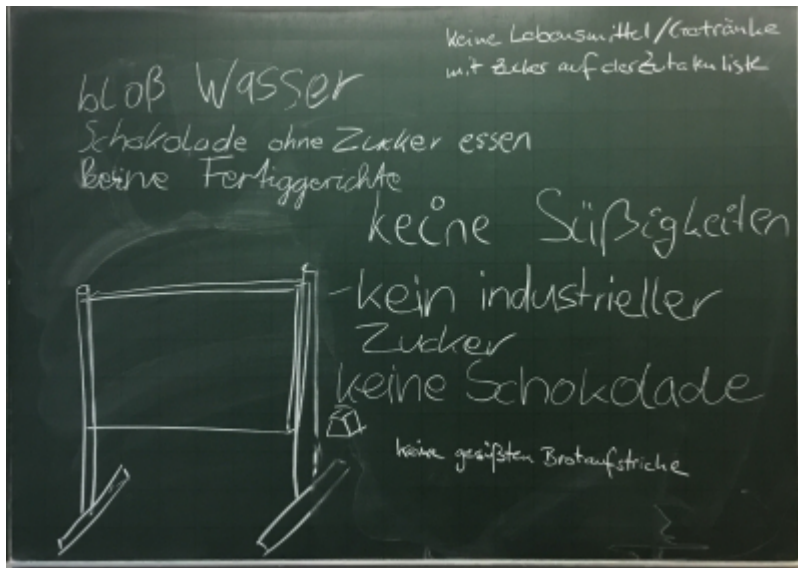 keine Lebensmittel/Getränke
mit Zucker auf der Zutatenliste
bloß Wasser
Schokolade ohne Zucker essen
Keine Fertiggerichte
keine Süßigkeiten
-kein industrieller
Zucker
keine Schokolade
keine gesüßten Brotaufstriche